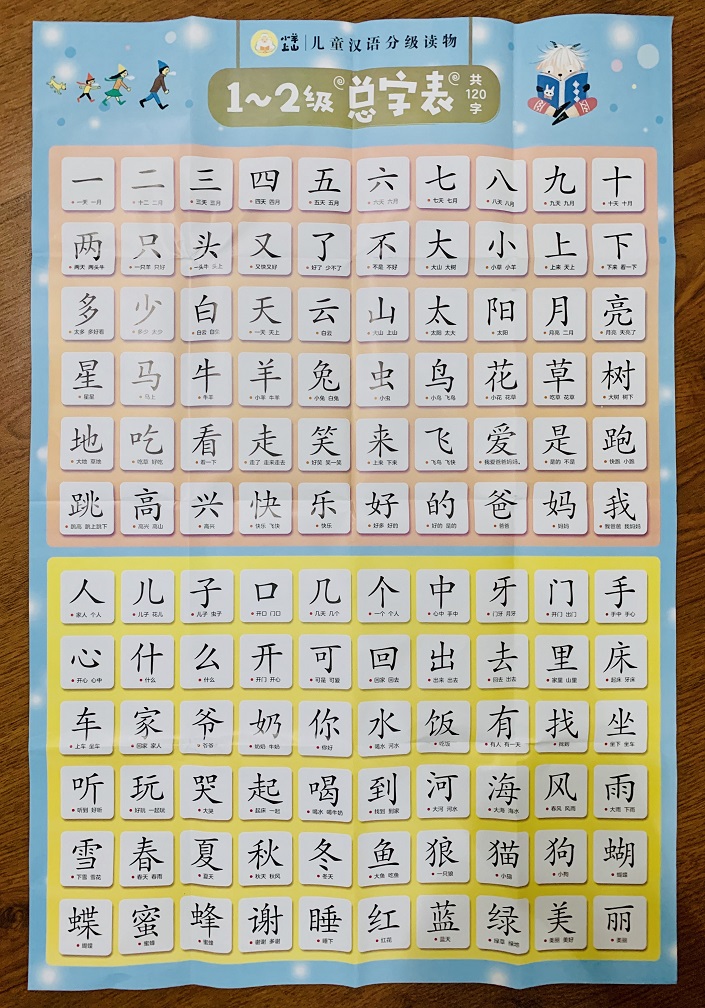 小羊上山 儿童汉语分级读物
1~2级 总字表 共120字
一 二 三 四 五 六 七 八 九 十
一天 一月 十二 二月 三天 三月 四天 四月 五天 五月 六天 六月 七天 七月 八天 八月 九天 九月 十天 十月
两 只 头 又 了 不 大 小 上 下
两天 两头牛 一只羊 只好 一头牛 头上 又快又好 好了 少不了 不是 不好 大山 大树 小草 小羊 上来 天上 下来 看一下
多 少 白 天 云 山 太 阳 月 亮
太多 好多 多少 太少 白云 一天 天上 白云 火山 上山 太阳 太大 太阳 月亮 二月 月亮 天亮了
星 马 牛 羊 兔 虫 鸟 花 草 树
星星 马上 牛羊 小羊 牛羊 小兔 白兔 小虫 小鸟 飞鸟 小花 花草 吃草 花草 大树 树下
地 吃 看 走 笑 来 飞 爱 是 跑
大地 草地 吃草 好吃 看一下 走了 走来走去 好笑 笑一笑 上来 下来 飞鸟 飞快 我爱爸爸妈妈。 是的 不是 快跑 小跑
跳 高 兴 快 乐 好 的 爸 妈 我
跳高 跳上跳下 高兴 高山 高兴 快乐 飞快 快乐 好多 好的 好的 是的 爸爸 妈妈 我爸爸 我妈妈
人 儿 子 口 几 个 中 牙 门 手
家人 个人 儿子 花儿 儿子 虫子 开口 门口 几天 几个 一个 个人 心中 手中 门牙 月牙 开门 出门 手中 手心
心 什 么 开 可 回 出 去 里 床
开心 心中 什么 什么 开门 开心 可是 可爱 回家 回去 出来 出去 回去 出去 家里 山里 起床 牙床
车 家 爷 奶 你 水 饭 有 找 坐
上车 坐车 回家 家人 爷爷 奶奶 牛奶 你好 喝水 河水 吃饭 有人 有一天 找到 坐下 坐车
听 玩 哭 起 喝 到 河 海 风 雨
听到 好听 好玩 一起玩 大哭 起床 一起 喝水 喝牛奶 找到 到家 大河 河水 大海 海水 春风 风雨 大雨 下雨
雪 春 夏 秋 冬 鱼 狼 猫 狗 蝴
下雪 雪花 春天 春雨 夏天 秋天 秋风 冬天 大鱼 吃鱼 一只狼 小猫 小狗 蝴蝶
蝶 蜜 蜂 谢 睡 红 蓝 绿 美 丽
蝴蝶 蜜蜂 蜜蜂 谢谢 多谢 睡下 红花 蓝天 绿草 绿地 美丽 美好 美丽